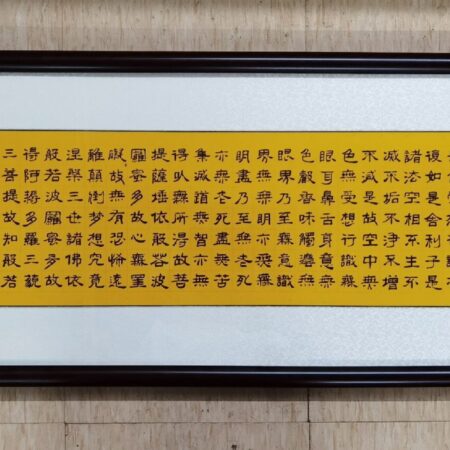 復如是舍利子是
諸法空相不生不
滅不垢不淨不增
不減是故空中無
色無受想行識無
眼耳鼻舌身意無
色聲香味觸法無
眼界乃至無意識
界無無明亦無無
明盡乃至無老死
亦無老死盡無苦
集滅道無智亦無
得以無所得故菩
提薩埵依般若波
羅蜜多故心無罣
礙故無有恐怖遠
離顛倒夢想究竟
涅槃三世諸佛依
般若波羅蜜多故
得阿耨多羅三藐
三菩提故知般若